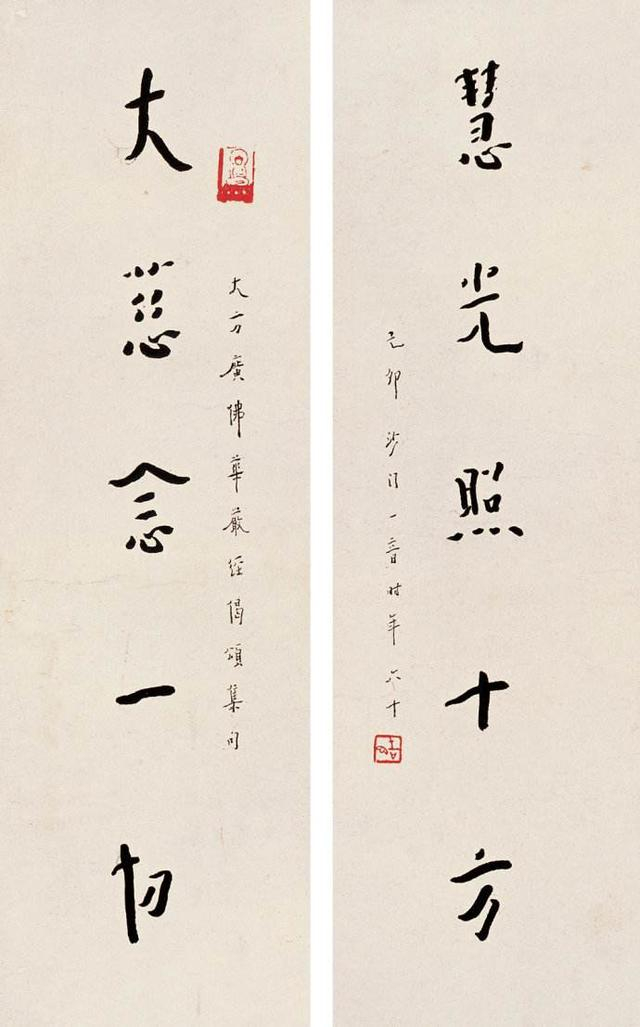 慧光照十方
己卯沙門一音時年六十
大慈念一切
大方廣佛華嚴經偈頌集句